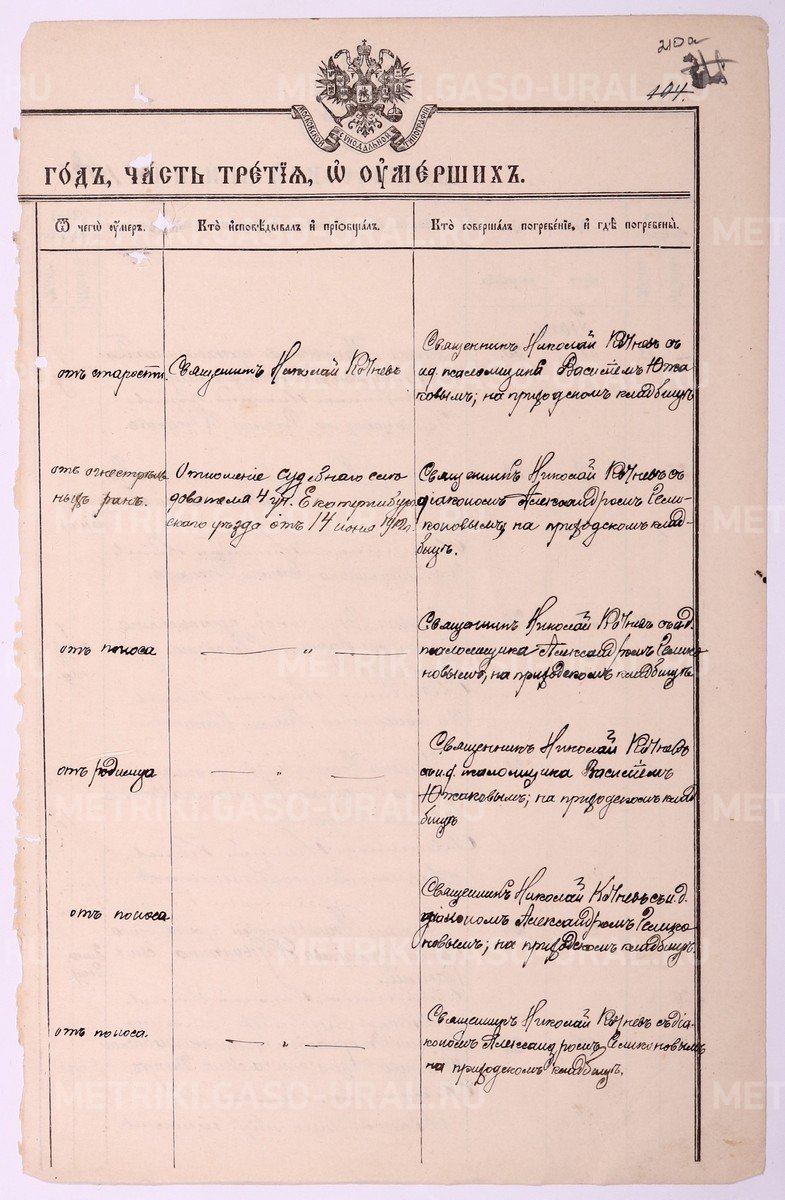 210а
104.
МОСКОВСКОЙ СѴНОДАЛЬНОЙ ТИПОГРАФІИ
ГОДЪ, ЧАСТЬ ТРЕТІЯ, Ѿ ОУМЕРШИХЪ.
Ѿ чегѡ оумеръ.
Кто исповѣдывалъ и пріобщалъ.
Кто совершалъ погребеніе, и гдѣ погребены.
отъ старости
Священникъ Николай
Священникъ Николай съ
и.д. псаломщика Василіемъ Южа-
ковымъ; на приходскомъ кладбищѣ
отъ огнестрѣль
ныхъ ранъ.
Отношеніе судебнаго слѣ
дователя 4 уч. Екатеринбург
скаго уѣзда отъ 14 іюня 1912 г.
Священникъ Николай съ
діакономъ Александромъ
на приходскомъ клад-
бищѣ.
отъ поноса
— " —
Священникъ Николай съ и.д.
псаломщика Александромъ
на приходскомъ кладбищѣ
отъ родимца
— " —
Священникъ Николай
съ и.д. псаломщика Василіемъ
Южаковымъ; на приходскомъ клад
бищѣ
отъ поноса
— " —
Священникъ Николай съ и.д.
діакономъ Александромъ
на приходскомъ кладбищѣ.
отъ поноса.
— " —
Священникъ Николай съ діа-
кономъ Александромъ
на приходскомъ кладбищѣ.
METRIKI.GASO-URAL.RU